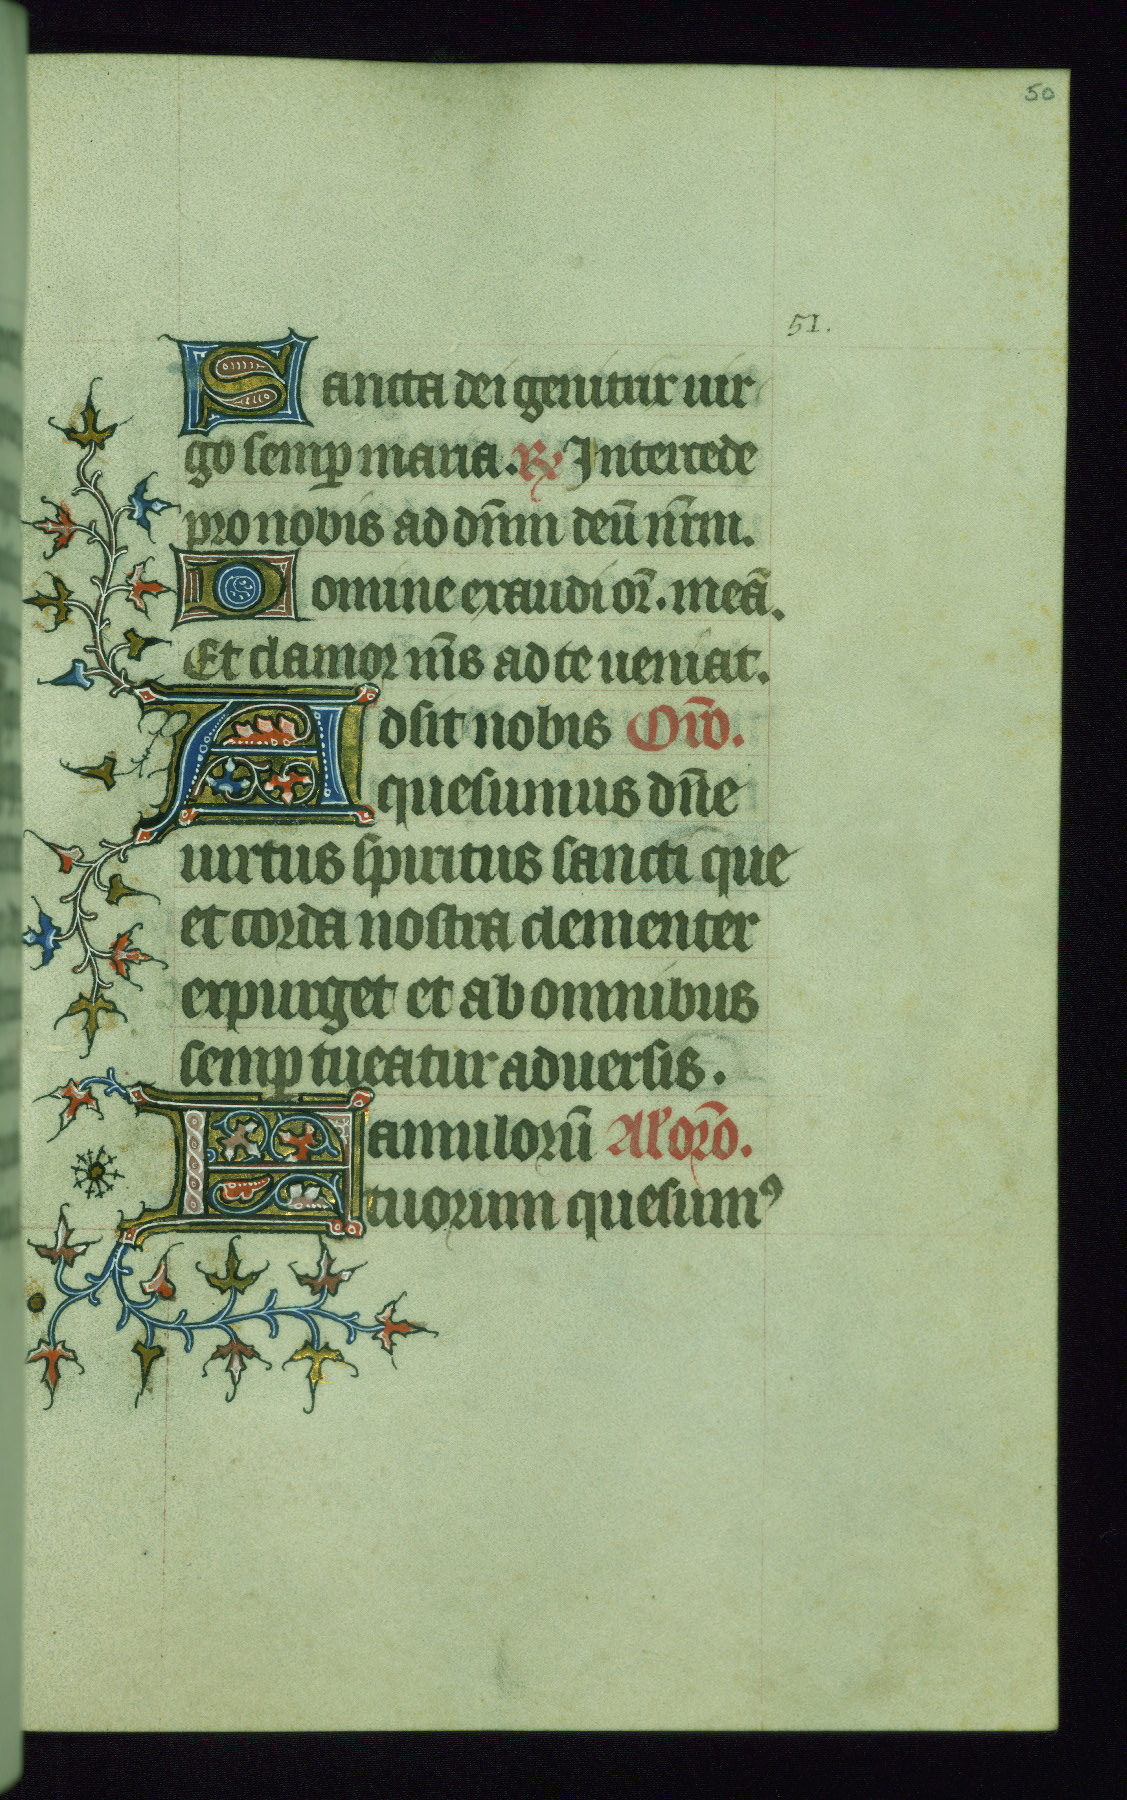 50
51.
Sancta dei genitur uir
go semp̱ maria. ℟ Intercede
pro nobis ad dn̄m deū nr̄m.
Domine exaudi or̄. meā.
Et clamor m̄s ad te ueniat.
Adsit nobis Or̄o.
quesumus dn̄e
uirtus spiritus sancti que
et corda nostra clementer
expurget et ab omnibus
semꝑ tueatur aduersis.
Famulorū Al' or̄o.
tuorum quesumꝰ